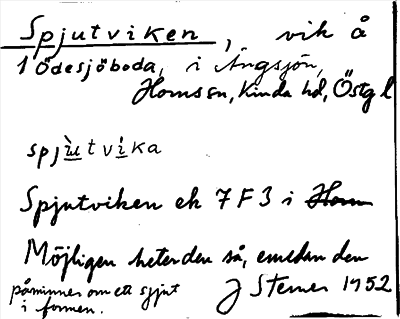 Spjutviken, vik å
1 Ödesjöboda, i Ängsjön,
Horns sn, Kinda hd, Östg l
spjùtvika
Spjutviken ek 7 F 3 i Horn
Möjligen heter den så, emedan den
påminner om ett spjut
i formen.
J Sterner 1952